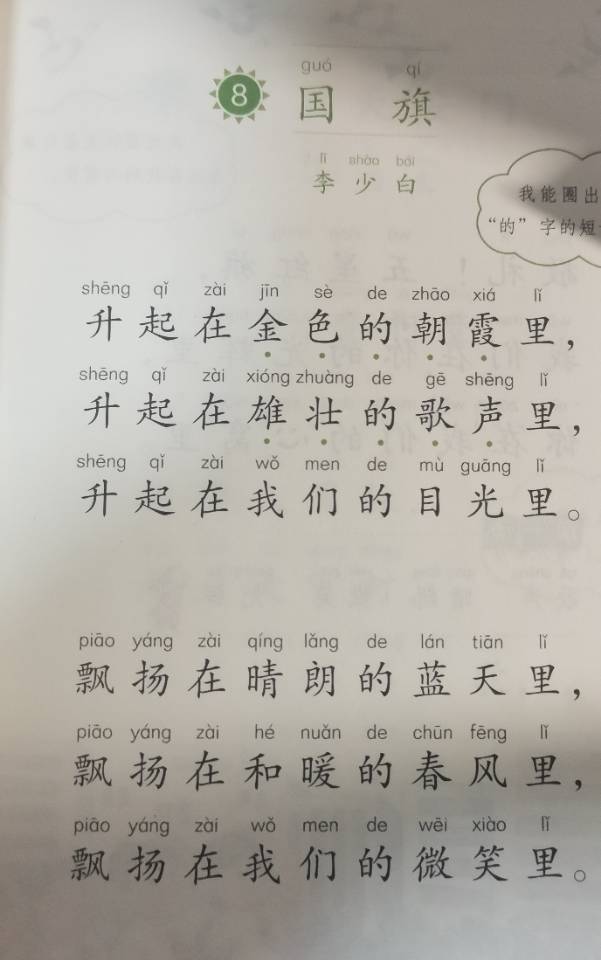 guó qí
8 国 旗
lǐ shào bái
李 少 白
我能圈出
“的”字的短
shēng qǐ zài jīn sè de zhāo xiá lǐ
升起在金色的朝霞里，
shēng qǐ zài xióng zhuàng de gē shēng lǐ
升起在雄壮的歌声里，
shēng qǐ zài wǒ men de mù guāng lǐ
升起在我们的目光里。
piāo yáng zài qíng lǎng de lán tiān lǐ
飘扬在晴朗的蓝天里，
piāo yáng zài hé nuǎn de chūn fēng lǐ
飘扬在和暖的春风里，
piāo yáng zài wǒ men de wēi xiào lǐ
飘扬在我们的微笑里。